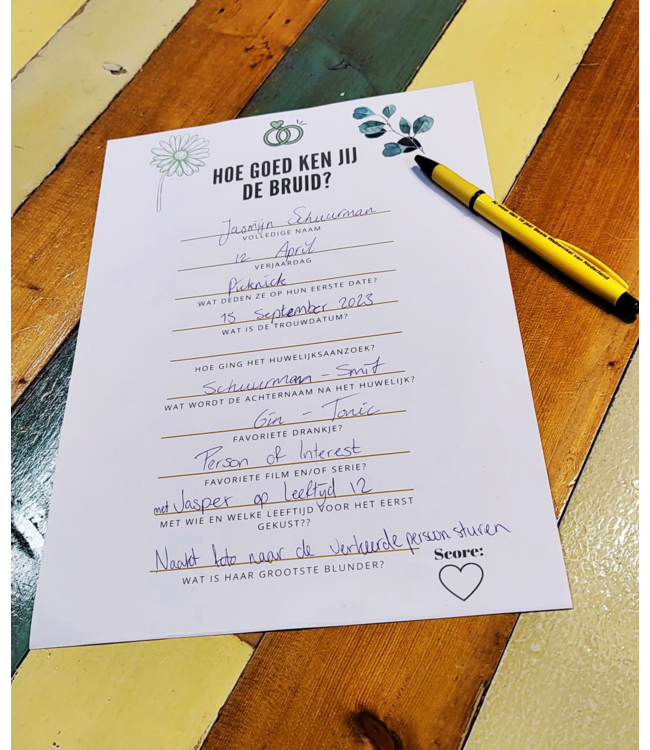 HOE GOED KEN JIJ
DE BRUID?
Jasmijn Schuurman
VOLLEDIGE NAAM
12 April
VERJAARDAG
Picknick
WAT DEDEN ZE OP HUN EERSTE DATE?
15 September 2023
WAT IS DE TROUWDATUM?
HOE GING HET HUWELIJKSAANZOEK?
Schuurman - Smit
WAT WORDT DE ACHTERNAAM NA HET HUWELIJK?
Gin - Tonic
FAVORIETE DRANKJE?
Person of Interest
FAVORIETE FILM EN/OF SERIE?
met Jasper op leeftijd 12
MET WIE EN WELKE LEEFTIJD VOOR HET EERST
GEKUST??
Naakt foto naar de verkeerde persoon sturen
WAT IS HAAR GROOTSTE BLUNDER?
Score:
van Nederland